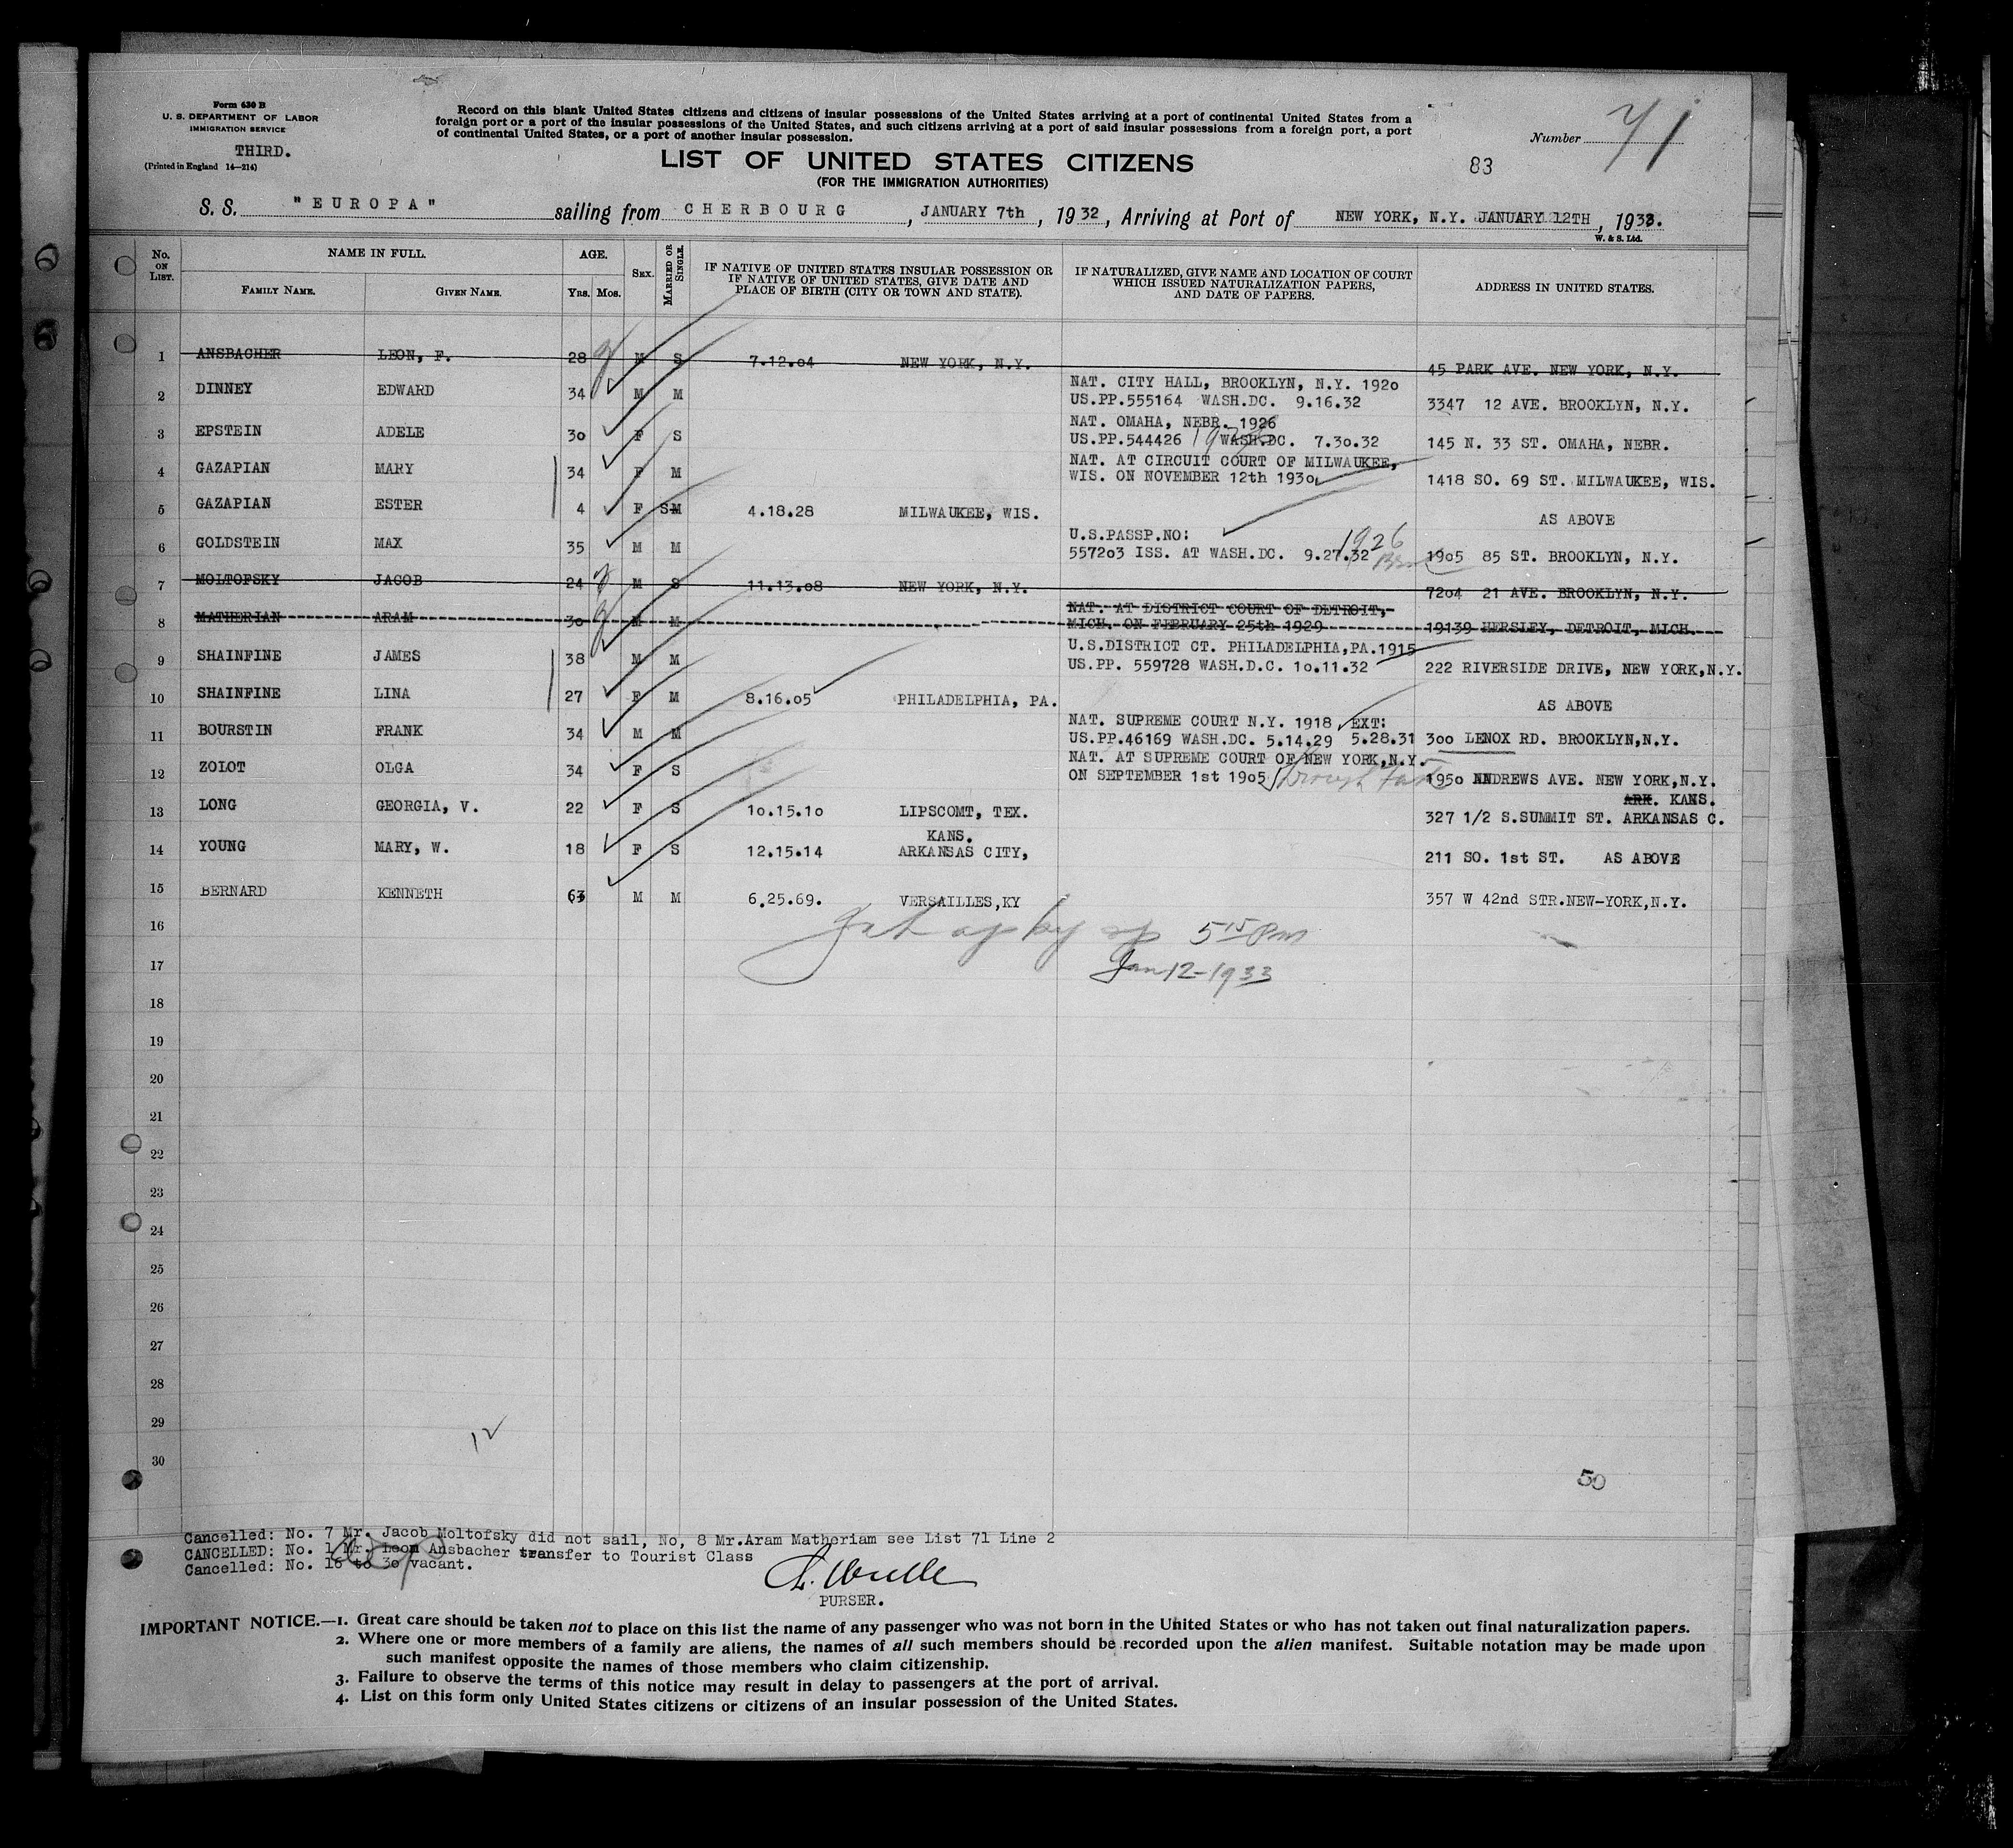 Form 630 B
U. S. DEPARTMENT OF LABOR
IMMIGRATION SERVICE
THIRD.
(Printed in England 14—214)
Record on this blank United States citizens and citizens of insular possessions of the United States arriving at a port of continental United States from a
foreign port or a port of the insular possessions of the United States, and such citizens arriving at a port of said insular possessions from a foreign port, a port
of continental United States, or a port of another insular possession.
Number 71
LIST OF UNITED STATES CITIZENS
83
(FOR THE IMMIGRATION AUTHORITIES)
S. S. "EUROPA" sailing from CHERBOURG, JANUARY 7th, 1932, Arriving at Port of NEW YORK, N.Y. JANUARY 12TH, 1933.
W. & S. Ltd.
No. ON LIST. NAME IN FULL. FAMILY NAME. GIVEN NAME. AGE. Yrs. Mos. SEX. MARRIED OR SINGLE. IF NATIVE OF UNITED STATES INSULAR POSSESSION OR IF NATIVE OF UNITED STATES, GIVE DATE AND PLACE OF BIRTH (CITY OR TOWN AND STATE). IF NATURALIZED, GIVE NAME AND LOCATION OF COURT WHICH ISSUED NATURALIZATION PAPERS, AND DATE OF PAPERS. ADDRESS IN UNITED STATES.
1 ANSBACHER LEON, F. 28 M S 7.12.04 NEW YORK, N.Y. 45 PARK AVE. NEW YORK, N.Y.
NAT. CITY HALL, BROOKLYN, N.Y. 1920
2 DINNEY EDWARD 34 M M US.PP.555164 WASH.DC. 9.16.32 3347 12 AVE. BROOKLYN, N.Y.
NAT. OMAHA, NEBR. 1926
3 EPSTEIN ADELE 30 F S US.PP.544426 WASH.DC. 7.30.32 145 N. 33 ST. OMAHA, NEBR.
NAT. AT CIRCUIT COURT OF MILWAUKEE,
4 GAZAPIAN MARY 34 F M WIS. ON NOVEMBER 12th 1930 1418 SO. 69 ST. MILWAUKEE, WIS.
5 GAZAPIAN ESTER 4 F SM 4.18.28 MILWAUKEE, WIS. AS ABOVE
U.S.PASSP.NO: 1926
6 GOLDSTEIN MAX 35 M M 557203 ISS. AT WASH.DC. 9.27.32 1905 85 ST. BROOKLYN, N.Y.
7 MOLTOFSKY JACOB 24 M S 11.13.08 NEW YORK, N.Y. 7204 21 AVE. BROOKLYN, N.Y.
NAT. AT DISTRICT COURT OF DETROIT,
8 MATHERIAN ARAM 30 M M MICH. ON FEBRUARY 25th 1929 19139 HERSLEY, DETROIT, MICH.
U.S.DISTRICT CT. PHILADELPHIA,PA.1915
9 SHAINFINE JAMES 38 M M US.PP. 559728 WASH.D.C. 10.11.32 222 RIVERSIDE DRIVE, NEW YORK,N.Y.
10 SHAINFINE LINA 27 F M 8.16.05 PHILADELPHIA, PA. AS ABOVE
NAT. SUPREME COURT N.Y. 1918 EXT:
11 BOURSTIN FRANK 34 M M US.PP.46169 WASH.DC. 5.14.29 5.28.31 300 LENOX RD. BROOKLYN,N.Y.
NAT. AT SUPREME COURT OF NEW YORK,N.Y.
12 ZOLOT OLGA 34 F S ON SEPTEMBER 1st 1905 through 1950 ANDREWS AVE. NEW YORK,N.Y.
ARK. KANS.
13 LONG GEORGIA, V. 22 F S 10.15.10 LIPSCOMT, TEX. 327 1/2 S.SUMMIT ST. ARKANSAS C.
KANS.
14 YOUNG MARY, W. 18 F S 12.15.14 ARKANSAS CITY, 211 SO. 1st ST. AS ABOVE
15 BERNARD KENNETH 63 M M 6.25.69. VERSAILLES,KY 357 W 42nd STR.NEW-YORK,N.Y.
16 5 15 Pm
17 Jan 12-1933
18
19
20
21
22
23
24
25
26
27
28
29
12
30
50
Cancelled: No. 7 Mr. Jacob Moltofsky did not sail, No, 8 Mr.Aram Matheriam see List 71 Line 2
CANCELLED: No. 1 Mr. Leon Ansbacher transfer to Tourist Class
Cancelled: No. 16 to 30 vacant.
PURSER.
IMPORTANT NOTICE.—1. Great care should be taken not to place on this list the name of any passenger who was not born in the United States or who has not taken out final naturalization papers.
2. Where one or more members of a family are aliens, the names of all such members should be recorded upon the alien manifest. Suitable notation may be made upon
such manifest opposite the names of those members who claim citizenship.
3. Failure to observe the terms of this notice may result in delay to passengers at the port of arrival.
4. List on this form only United States citizens or citizens of an insular possession of the United States.